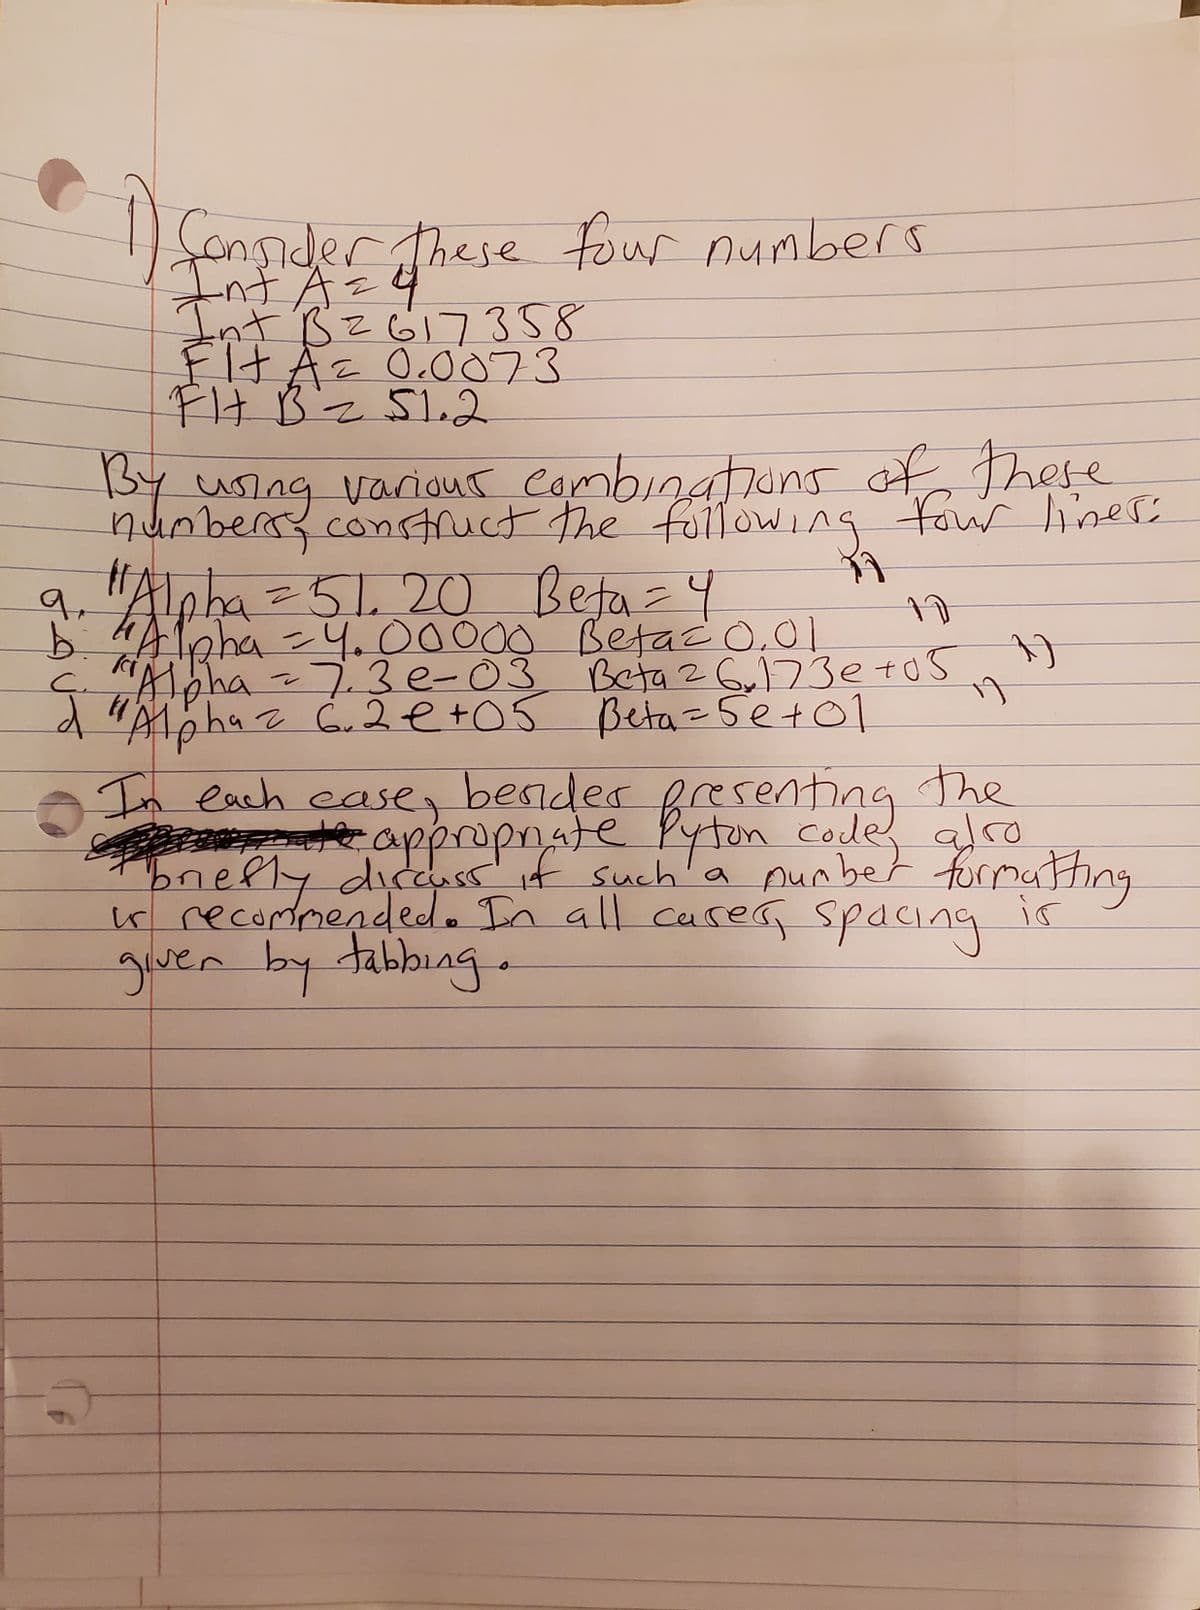 1) Consider these four numbers
Int A = 4
Int B = 617358
Flt A = 0.0073
Flt B = 51.2
By using various combinations of these
numbers, construct the following four lines:
a. "Alpha = 51.20 Beta = 4"
b. "Alpha = 4.00000 Beta = 0.01"
c. "Alpha = 7.3e-03 Beta = 6.173e+05"
d "Alpha = 6.2e+05 Beta = 5e+01"
In each case, besides presenting the
appropriate Pyton code, also
briefly discuss if such a number formatting
is recommended. In all cases, spacing is
given by tabbing.